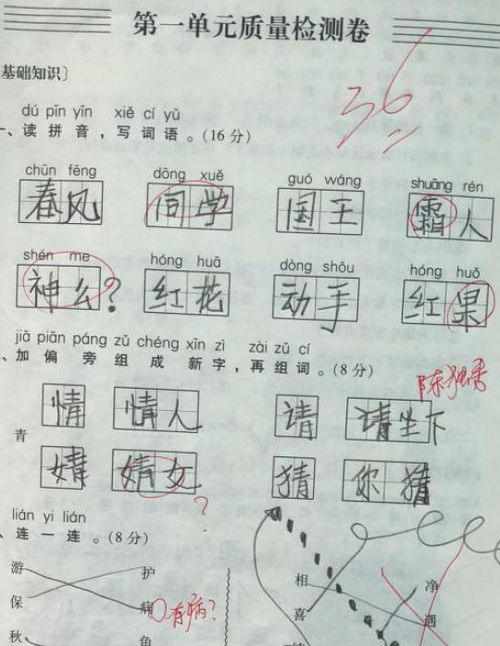 第一单元质量检测卷
36
基础知识〕
dú pīn yīn xiě cí yǔ
一、读拼音，写词语。(16分)
chūn fēng dōng xuě guó wáng shuāng rén
春风 同学 国王 霜人
shén me hóng huā dòng shǒu hóng huǒ
神么? 红花 动手 红果
jiā piān páng zǔ chéng xīn zì zài zǔ cí
、加偏旁组成新字，再组词。(8分)
情 情人 请 请坐下
青
婧 婧女 猜 你猜
?
lián yi lián
、连一连。(8分)
游 护 相 净
保 病 有病? 喜 遇
秋 鱼